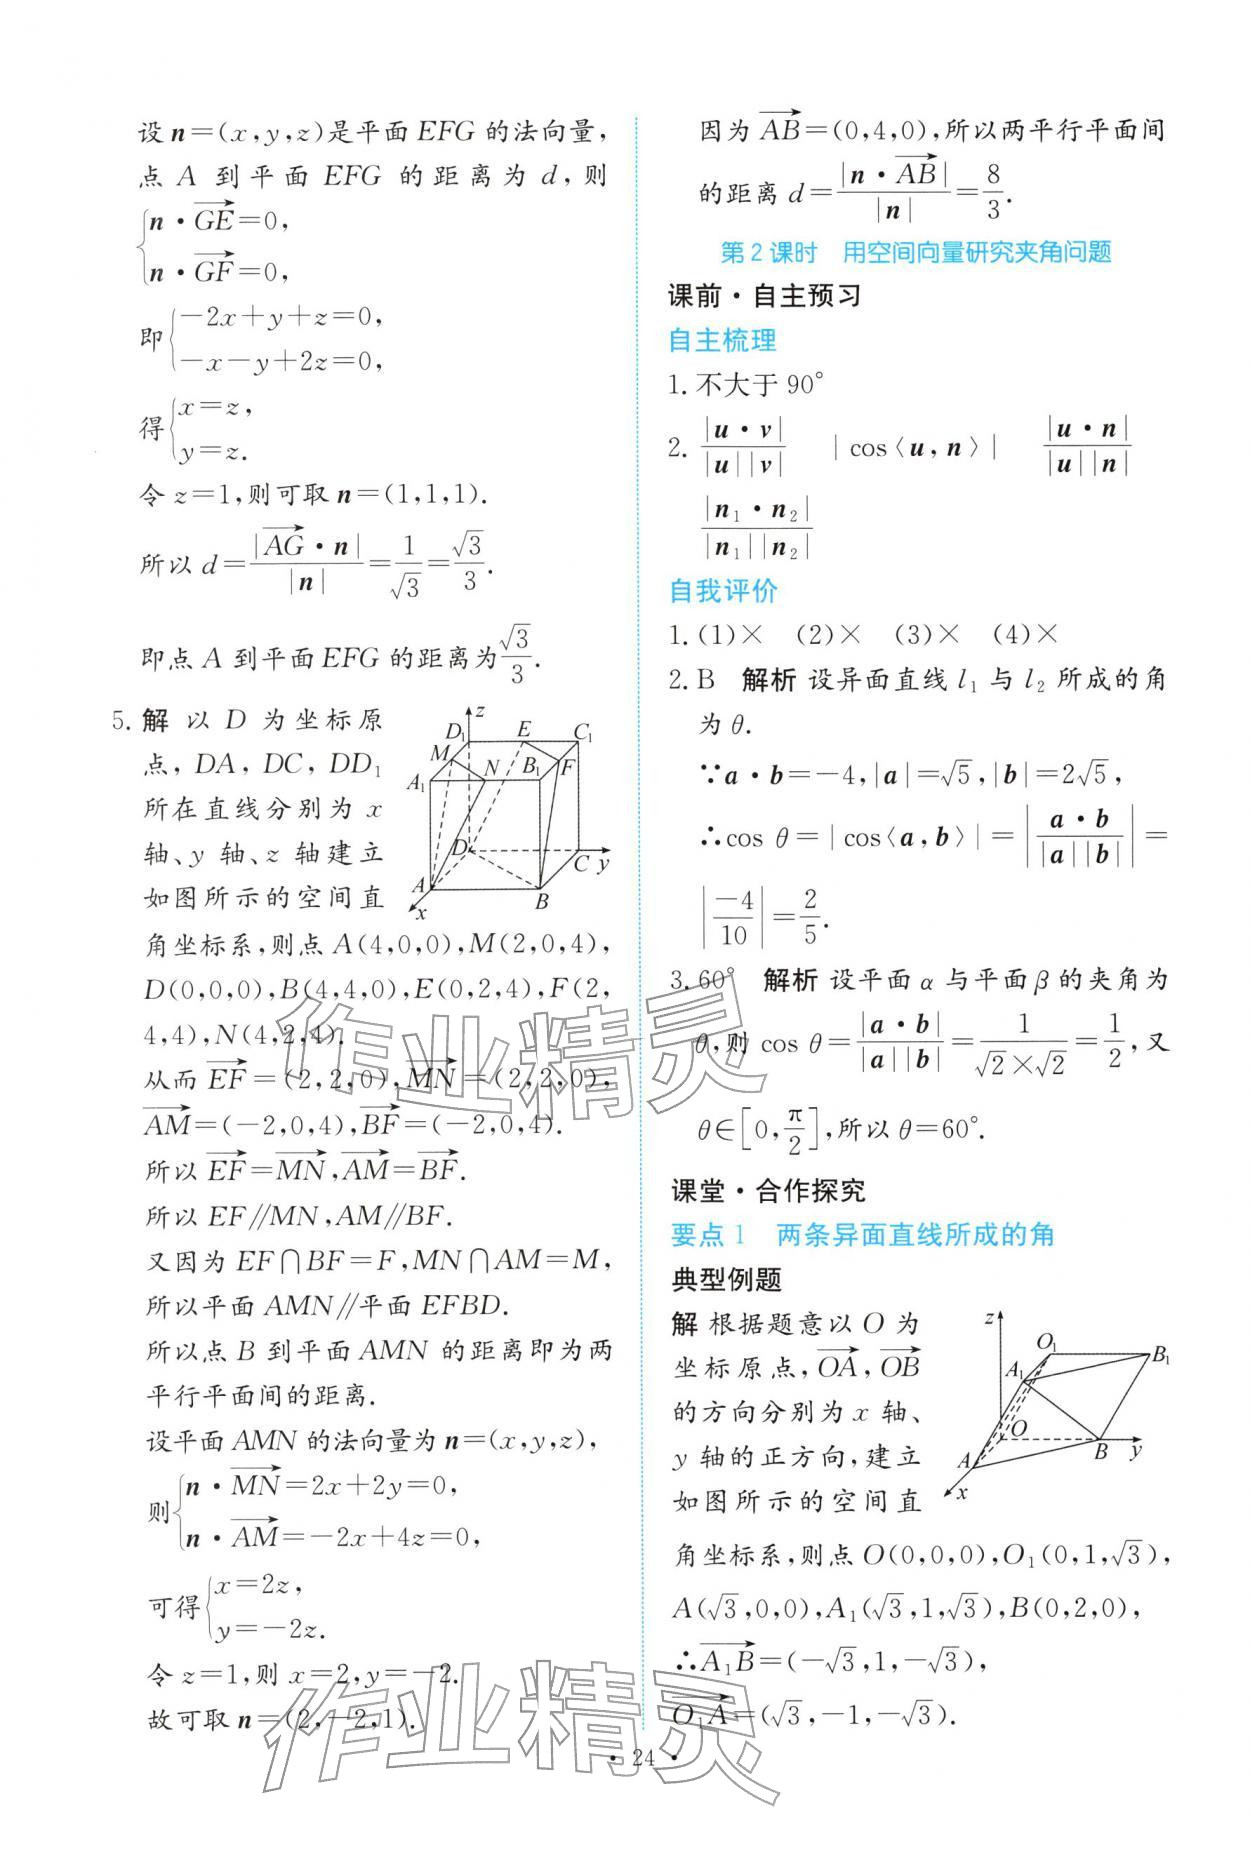 设 n=(x,y,z)是平面 EFG 的法向量,
点 A 到平面 EFG 的距离为 d,则
{n·GE→=0,
n·GF→=0,
即{-2x+y+z=0,
-x-y+2z=0,
得{x=z,
y=z.
令 z=1,则可取 n=(1,1,1).
所以 d=|AG→·n|/|n|=1/√3=√3/3.
即点 A 到平面 EFG 的距离为√3/3.
5. 解 以 D 为坐标原
点,DA,DC,DD₁
所在直线分别为 x
轴、y 轴、z 轴建立
如图所示的空间直
z
D₁ E C₁
M N B₁ F
A₁
D C y
A B
x
角坐标系,则点 A(4,0,0),M(2,0,4),
D(0,0,0),B(4,4,0),E(0,2,4),F(2,
4,4),N(4,2,4).
从而EF→=(2,2,0),MN→=(2,2,0),
AM→=(-2,0,4),BF→=(-2,0,4).
所以EF→=MN→,AM→=BF→.
所以 EF∥MN,AM∥BF.
又因为 EF∩BF=F,MN∩AM=M,
所以平面 AMN∥平面 EFBD.
所以点 B 到平面 AMN 的距离即为两
平行平面间的距离.
设平面 AMN 的法向量为 n=(x,y,z),
则{n·MN→=2x+2y=0,
n·AM→=-2x+4z=0,
可得{x=2z,
y=-2z.
令 z=1,则 x=2,y=-2.
故可取 n=(2,-2,1).
因为AB→=(0,4,0),所以两平行平面间
的距离 d=|n·AB→|/|n|=8/3.
第2课时 用空间向量研究夹角问题
课前·自主预习
自主梳理
1. 不大于 90°
2. |u·v|/|u||v| |cos〈u,n〉| |u·n|/|u||n|
|n₁·n₂|/|n₁||n₂|
自我评价
1. (1)× (2)× (3)× (4)×
2. B 解析 设异面直线 l₁ 与 l₂ 所成的角
为 θ.
∵a·b=-4,|a|=√5,|b|=2√5,
∴cos θ=|cos〈a,b〉|=|a·b/|a||b||=
|-4/10|=2/5.
3. 60° 解析 设平面 α 与平面 β 的夹角为
θ,则 cos θ=|a·b|/|a||b|=1/(√2×√2)=1/2,又
θ∈[0,π/2],所以 θ=60°.
课堂·合作探究
要点1 两条异面直线所成的角
典型例题
解 根据题意以 O 为
坐标原点,OA→,OB→
的方向分别为 x 轴、
y 轴的正方向,建立
如图所示的空间直
z
O₁ B₁
A₁
O
A B y
x
角坐标系,则点 O(0,0,0),O₁(0,1,√3),
A(√3,0,0),A₁(√3,1,√3),B(0,2,0),
∴A₁B→=(-√3,1,-√3),
O₁A→=(√3,-1,-√3).
·24·
作业精灵
作业精灵